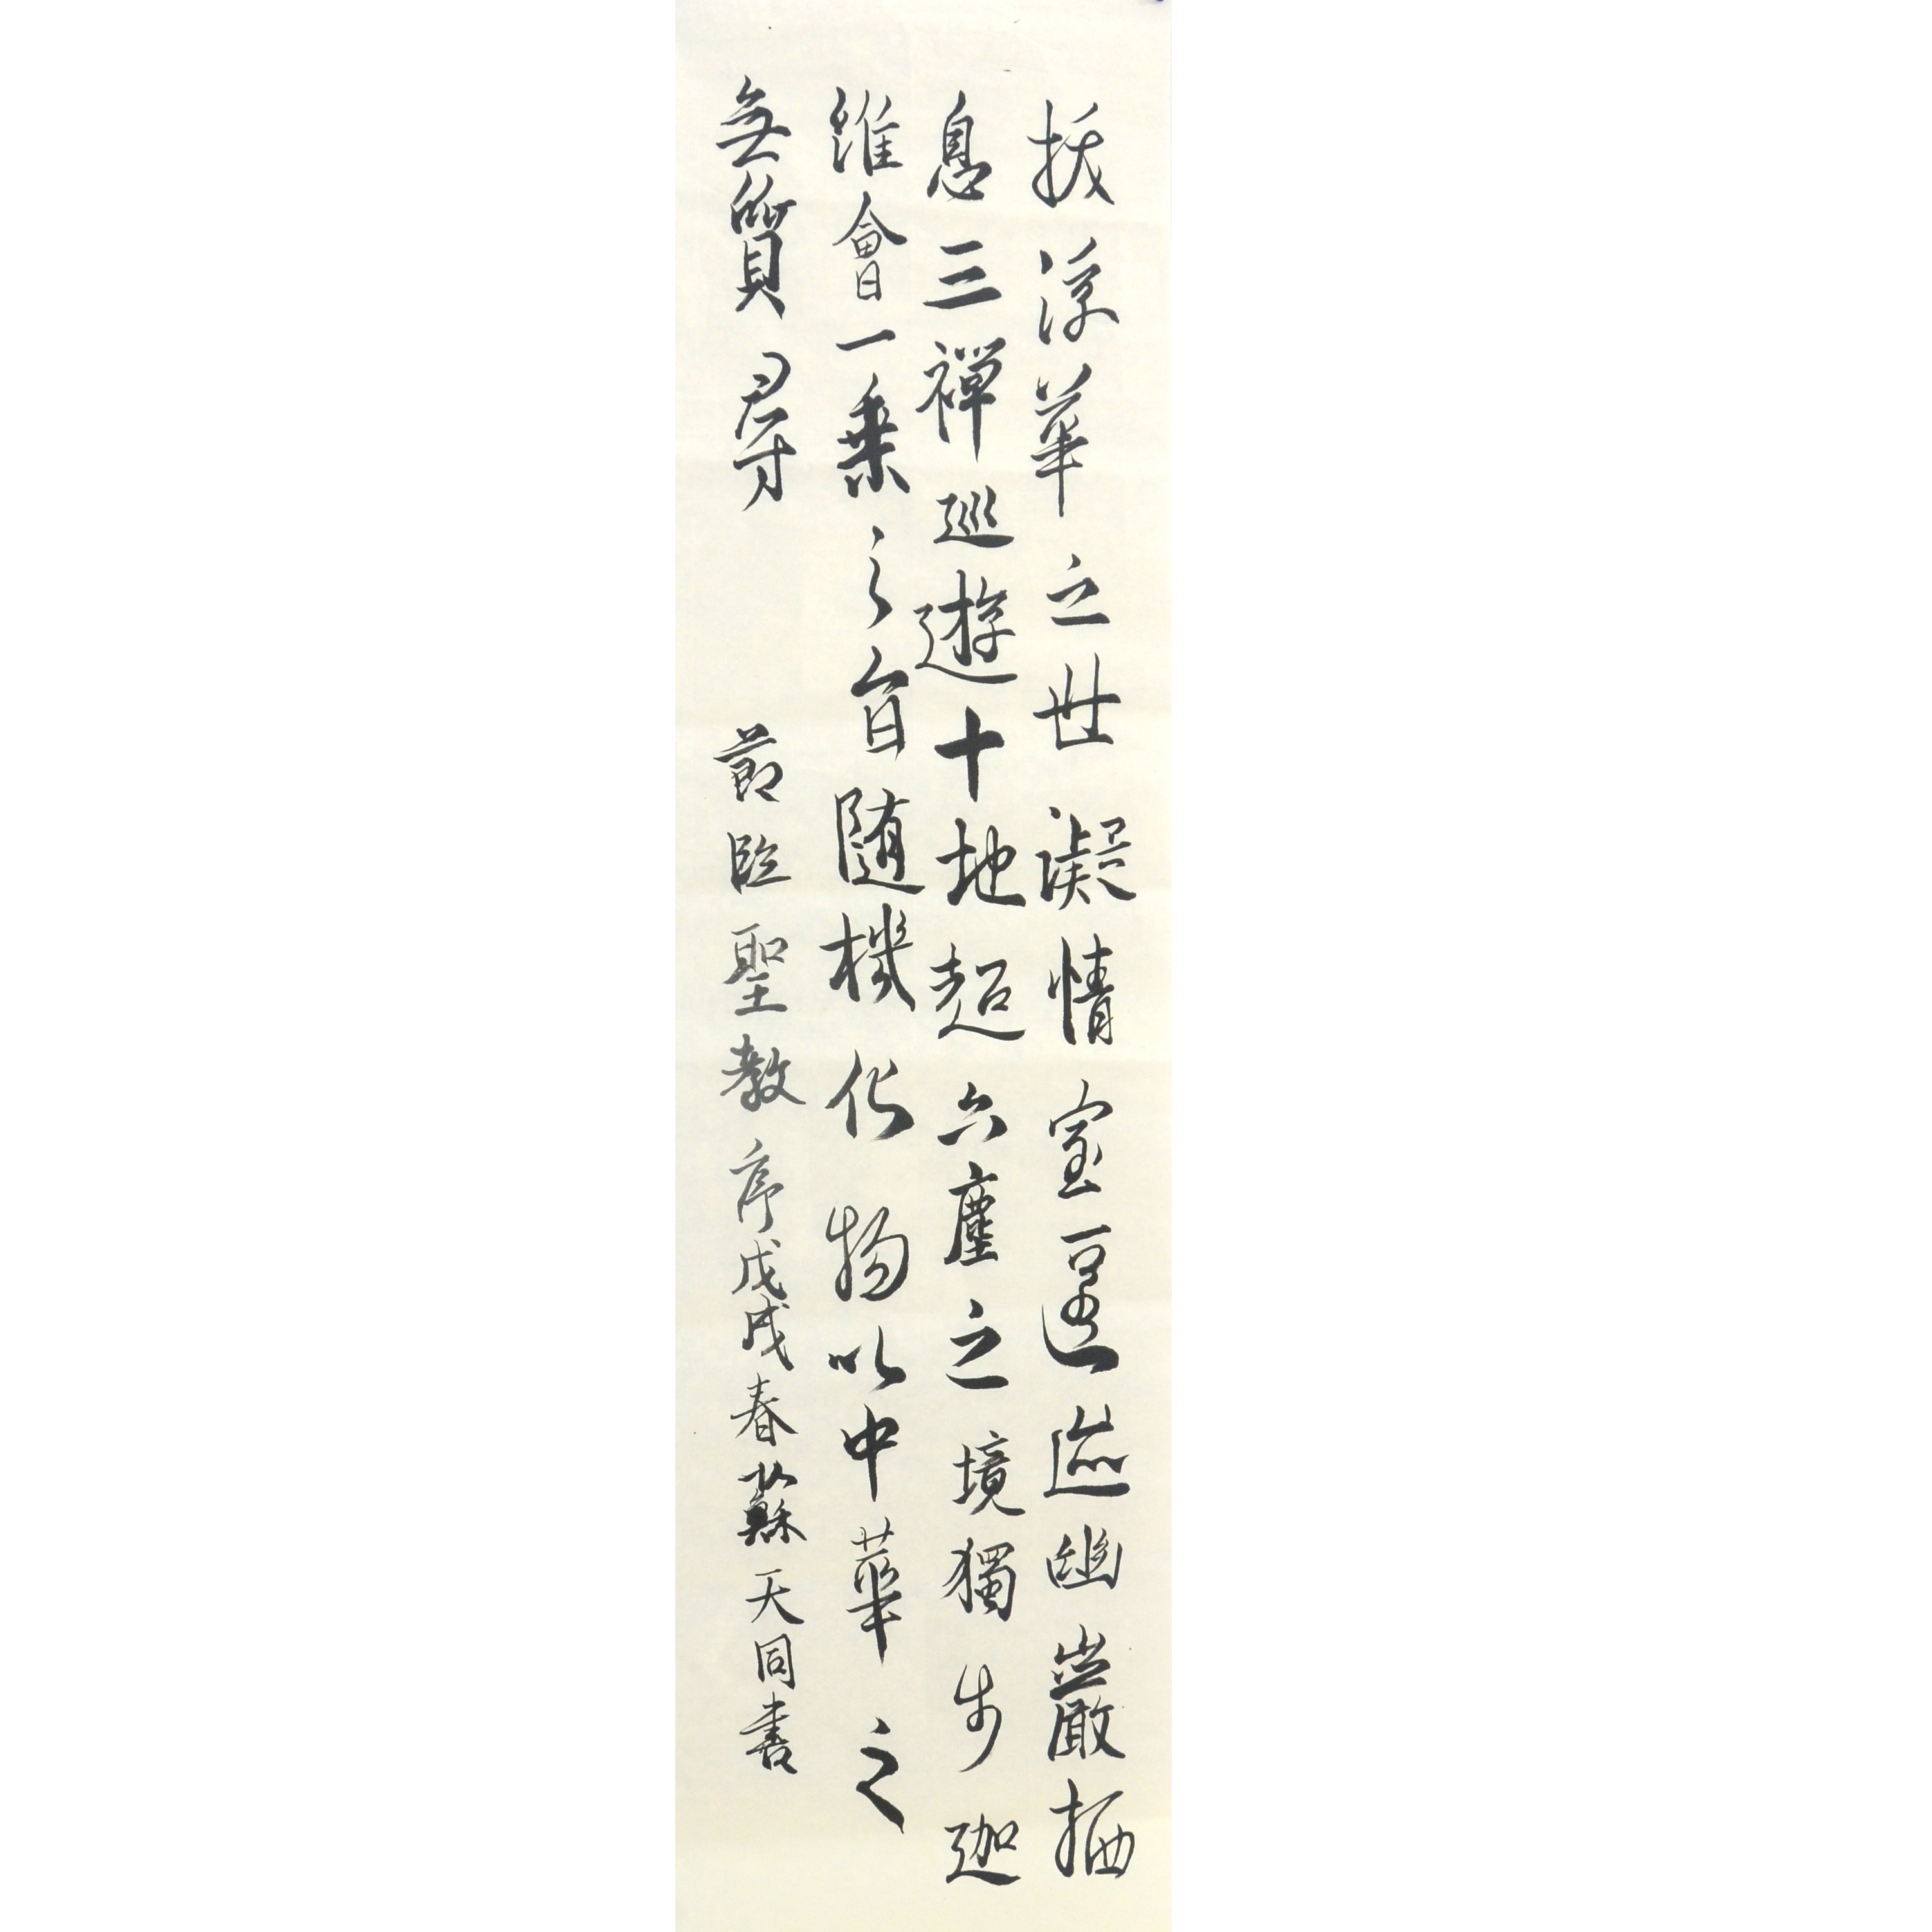 拔浮華之世凝情定室匿迹幽巖栖
息三禪巡遊十地超六塵之境獨步迦
維會一乘之旨随機化物以中華之
無質尋
節臨聖教序戊戌春蘇天同書